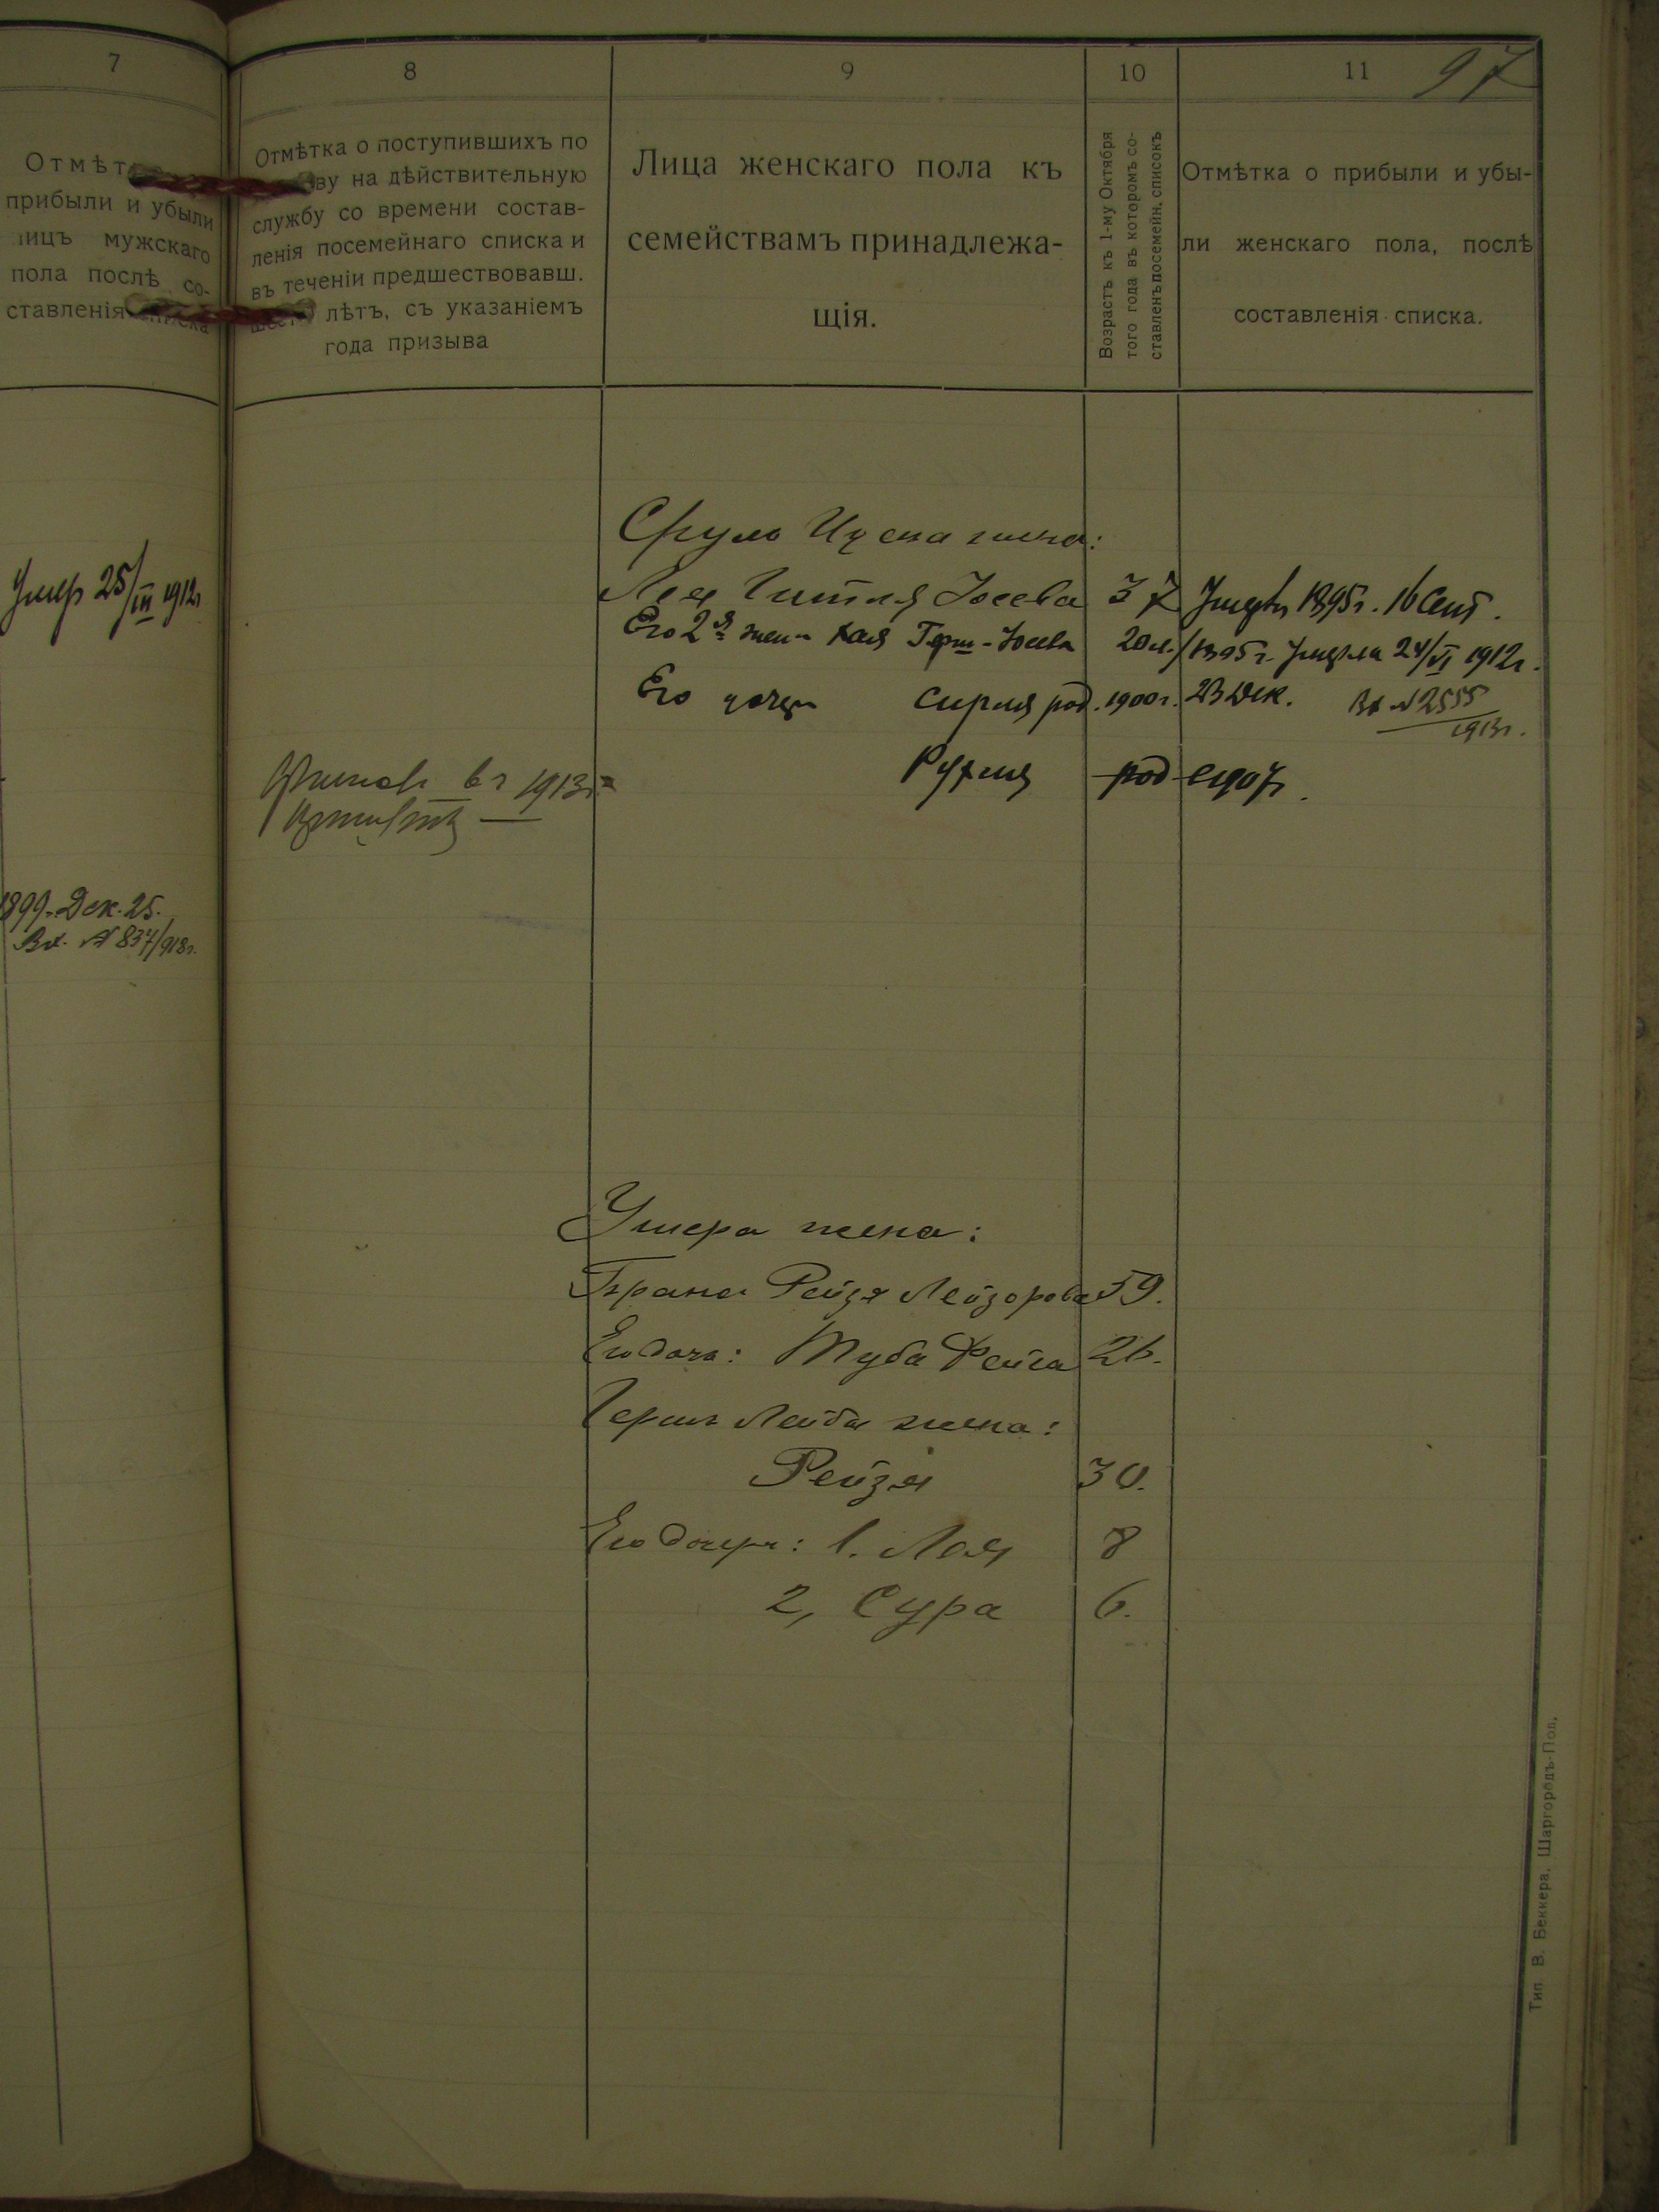 7
Отмѣт
прибыли и убыли
лицъ мужскаго
пола послѣ со-
ставленія списка
Умер 25/III 1912г
1899 Дек. 25.
Вх. № 837/918г.
8
Отмѣтка о поступившихъ по
ву на дѣйствительную
службу со времени состав-
ленія посемейнаго списка и
въ теченіи предшествовавш.
шести лѣтъ, съ указаніемъ
года призыва
вг 1913г
9
Лица женскаго пола къ
семействамъ принадлежа-
щія.
10
Возрастъ къ 1-му Октября
того года въ которомъ со-
ставленъ посемейн. списокъ
11
97
Отмѣтка о прибыли и убы-
ли женскаго пола, послѣ
составленія списка.
Сруль Ицека жена:
Лея Гитля Іосева 37 1895г. 16 Сент.
Его 2я жена Хая Герш-Іосева 20 л./1895г. Умерла 24/VI 1912г.
Его дочери Сирля род. 1900г. 23 Дек. Вх № 2555
1913г.
Рухля род 1907г.
Ушера жена:
Брана Рейзя Лейзорова 59.
Его дочь: Туба Фейга 26.
Герш Лейбы жена:
Рейзя 30.
Его дочери: 1. Лея 8
2, Сура 6.
Тип В. Беккера, Шаргородъ-Под.